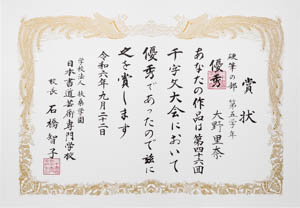 賞状
硬筆の部 第五学年
優秀
大野里奈
あなたの作品は第四十六回
千字文大会において
優秀であったので茲に
之を賞します
令和六年九月二十二日
学校法人 扶桑学園
日本書道芸術専門学校
校長 石橋智子